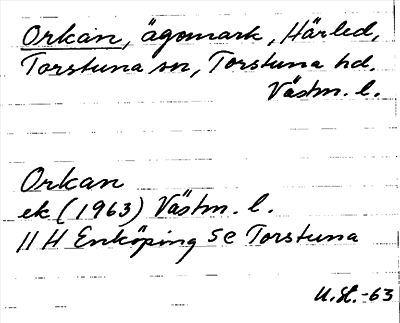 Orkan, ägomark, Härled,
Torstuna sn, Torstuna hd.
Västm. l.
Orkan
ek (1963) Västm. l.
11 H Enköping SC Torstuna
U.H.-63